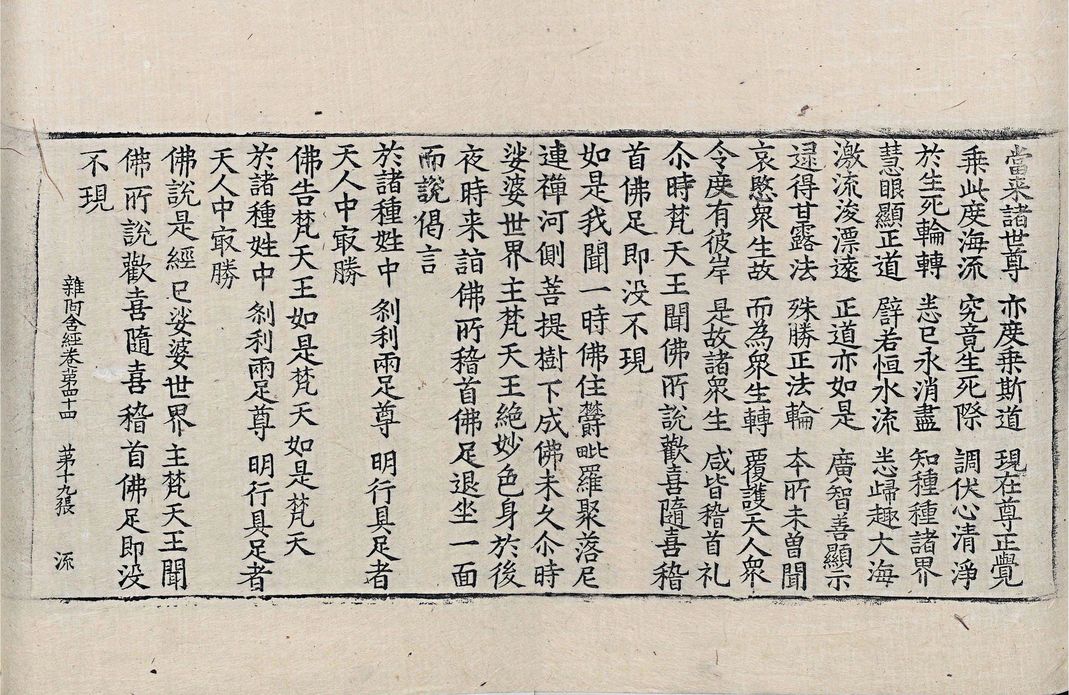 當来諸世尊 亦度乗斯道 現在尊正覺
乗此度海流 究竟生死際 調伏心清淨
於生死輪轉 悉已永消盡 知種種諸界
慧眼顯正道 譬若恒水流 悉歸趣大海
激流浚漂遠 正道亦如是 廣智善顯示
逮得甘露法 殊勝正法輪 本所未曾聞
哀愍衆生故 而為衆生轉 覆護天人衆
令度有彼岸 是故諸衆生 咸皆稽首礼
尒時梵天王聞佛所說歡喜隨喜稽
首佛足即没不現
如是我聞一時佛住欝毗羅聚落尼
連禪河側菩提樹下成佛未久尒時
娑婆世界主梵天王絶妙色身於後
夜時来詣佛所稽首佛足退坐一面
而說偈言
於諸種姓中 刹利兩足尊 明行具足者
天人中㝡勝
佛告梵天王如是梵天如是梵天
於諸種姓中 刹利兩足尊 明行具足者
天人中㝡勝
佛說是經已娑婆世界主梵天王聞
佛所說歡喜隨喜稽首佛足即没
不現
雜阿含經卷第四十四 第十九張 流